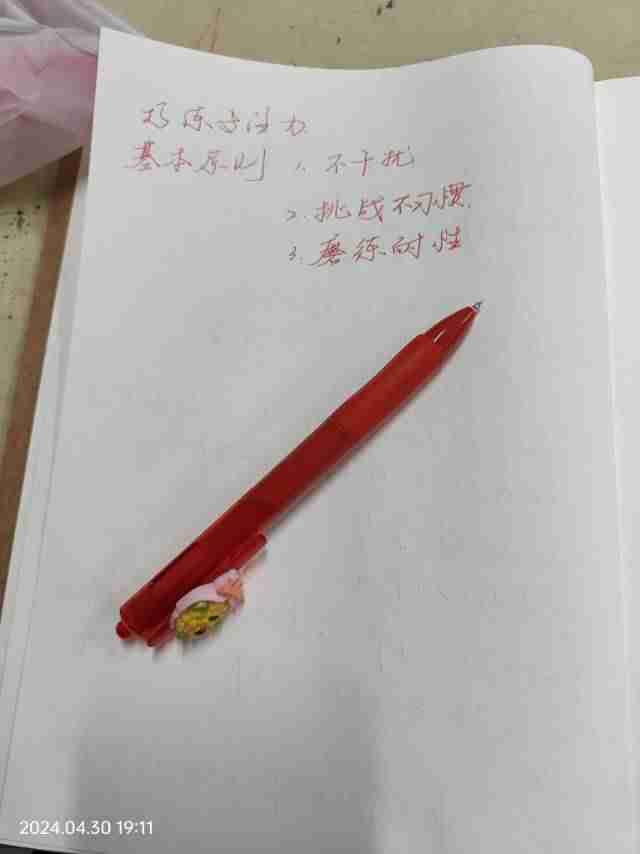 巧练专注力
基本原则 1. 不干扰
2. 挑战不习惯.
3. 磨练耐性
2024.04.30 19:11